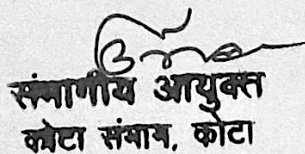 संभागीय आयुक्त
कोटा संभाग, कोटा